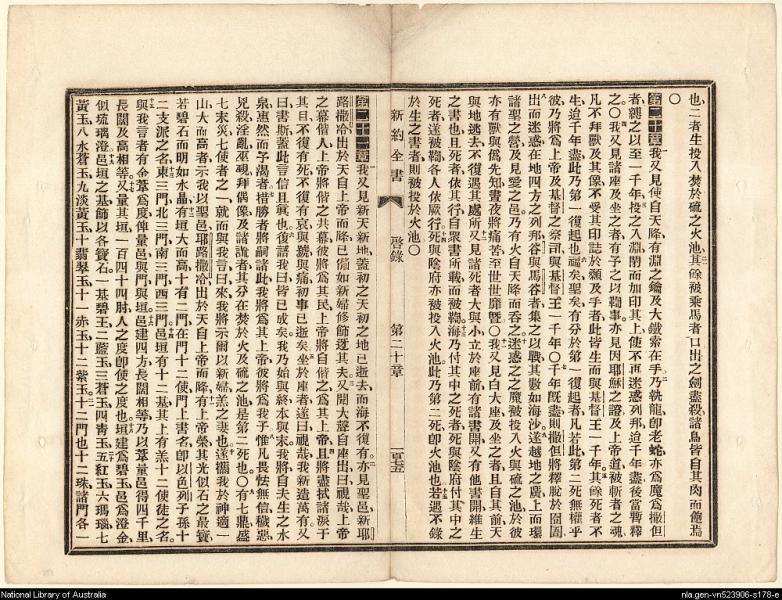 也二者生投入焚於硫之火池其餘被乘馬者口出之劍盡殺諸鳥皆自其肉而飽焉
〇
第二十章我又見使自天降有淵之鑰及大鐵索在手乃執龍卽老蛇亦爲魔爲撒但
者縛之以至一千年投之入淵閉而加印其上使不再迷惑列邦迨千年盡後當暫釋
之〇我又見諸座及坐之者有予之以鞫事亦見因耶穌之證及上帝道被斬者之魂
凡不拜獸及其像不受其印誌於額及手者此皆生而與基督王一千年其餘死者不
生迨千年盡此乃第一復起也福矣聖矣有分於第一復起者凡若此第二死無權乎
彼乃將爲上帝及基督之祭司與基督王一千年〇千年旣盡則撒但將釋脫於囹圄
出而迷惑在地四方之列邦谷與馬谷者集之以戰其數如海沙遂越地之廣上而環
諸聖之營及見愛之邑乃有火自天降而吞之迷惑之之魔被投入火與硫之池於彼
亦有獸與僞先知晝夜將痛苦至世世靡曁〇我又見白大座及坐之者且自其前天
與地逃去不復遇其處所又見諸死者大與小立於座前有諸書開又有他書開維生
之書也且死者依其行自衆書所載而被鞫海乃付其中之死者死與陰府付其中之
死者遂被鞫各人依厥行死與陰府亦被投入火池此乃第二死卽火池也若遇不錄
於生之書者則被投於火池〇
新約全書 啓錄 第二十章
第二十一章我又見新天新地蓋初之天初之地已逝去而海不復有亦見聖邑新耶
路撒冷出於天自上帝而降已備如新婦修飾迓其夫又聞大聲自座出曰視哉上帝
之幕偕人上帝將偕之共幕彼將爲其民上帝將自偕之爲其上帝且將盡拭諸淚于
其目不復有死不復有哀與號與痛初事已逝矣坐於座者遂曰視哉我新造萬有又
曰書斯蓋此言信且眞也復語我曰皆已成矣我乃始與終本與末我將自夫生之水
泉惠然而予渴者措勝者將嗣諸此我將爲其上帝彼將爲我子惟凡畏怯無信穢惡
兇殺淫亂巫覡拜偶像及諸誑者其分在焚於火及硫之池是第二死也〇有七鼎盛
七末災七使者之一就而與我言曰來我將示爾以新婦羔之妻也遂攜我於神適一
山大而高者示我以聖邑耶路撒冷出於天自上帝而降有上帝榮其光似石之最寶
若碧石而明如水晶有垣大而高十有二門在門十二使門上書名卽以色列子孫十
二支派之名東三門北三門南三門西三門邑垣有十二基其上有羔十二使徒之名
與我言者有金葦爲度俾量邑與門與垣邑建四方長闊相等乃以葦量邑得四千里
長闊及高相等又量其垣一百四十四肘人之度卽使之度也垣建爲碧玉邑爲澄金
似琉璃澄邑垣之基飾以各寶石一基碧玉二藍玉三蒼玉四靑玉五紅玉六瑪瑙七
黃玉八水蒼玉九淡黃玉十翡翠玉十一赤玉十二紫玉十二門也十二珠諸門各一
National Library of Australia
nla.gen-vn523906-s178-e